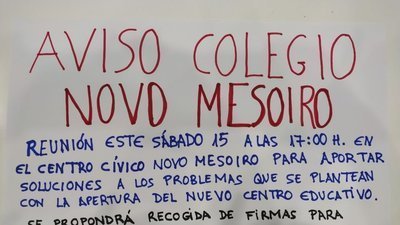 AVISO COLEGIO
NOVO MESOIRO
REUNIÓN ESTE SÁBADO 15 A LAS 17:00 H. EN
EL CENTRO CÍVICO NOVO MESOIRO PARA APORTAR
SOLUCIONES A LOS PROBLEMAS QUE SE PLANTEAN
CON LA APERTURA DEL NUEVO CENTRO EDUCATIVO.
SE PROPONDRÁ RECOGIDA DE FIRMAS PARA